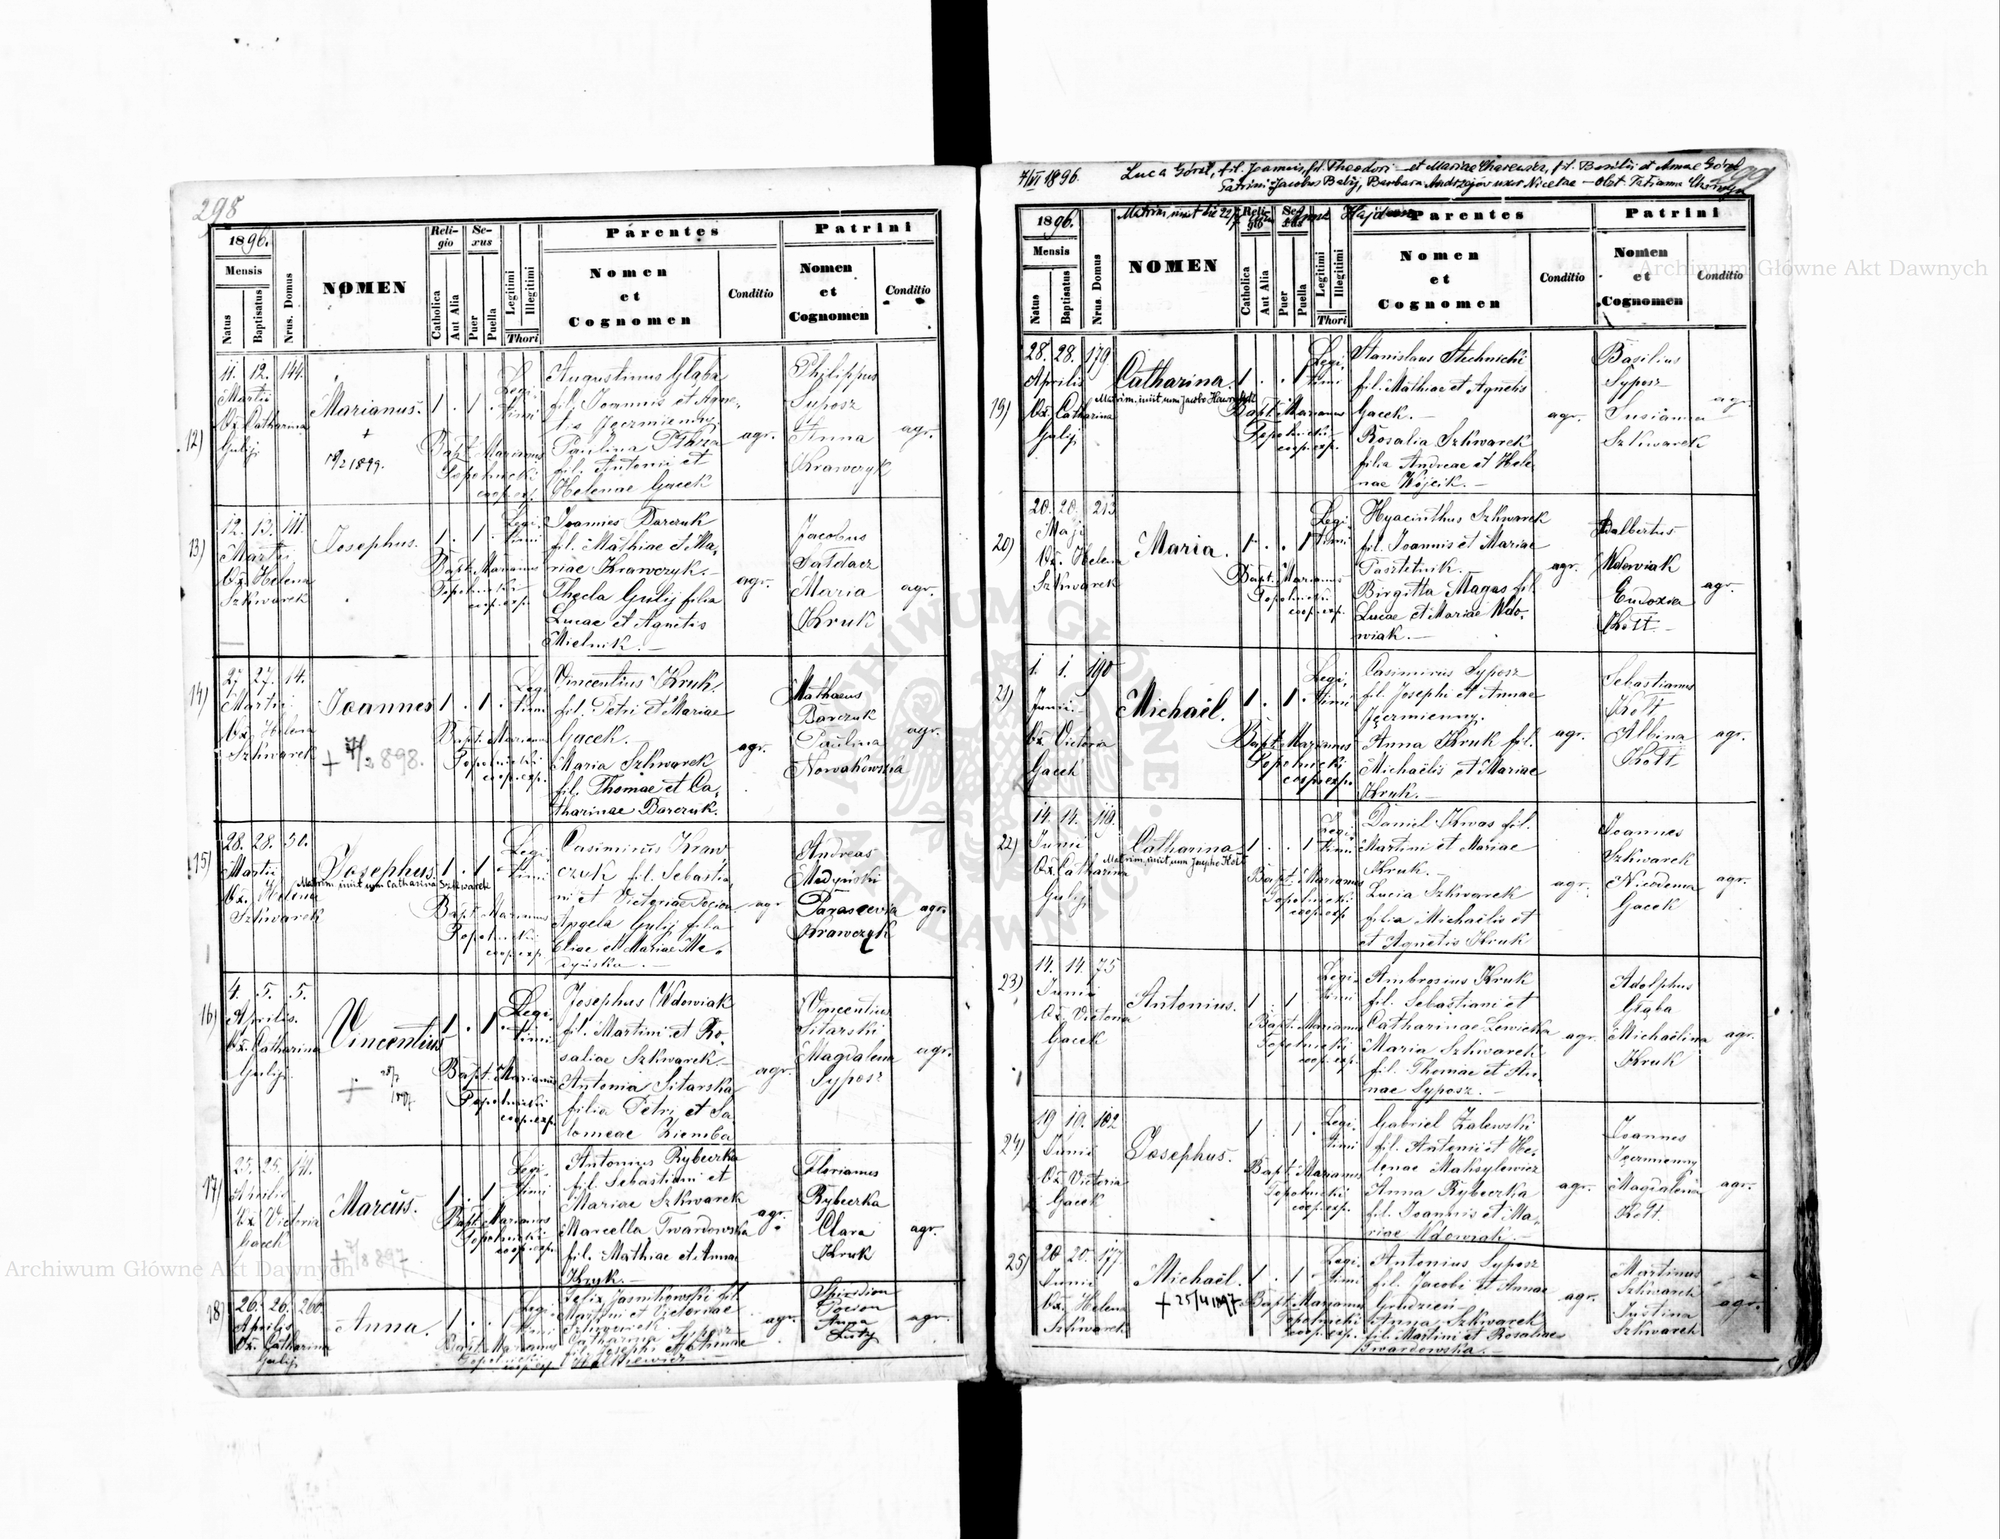 298
1896.
Mensis
Natus
Baptisatus
Nrus. Domus
NOMEN
Reli-
gio
Catholica
Aut Alia
Se-
xus
Puer
Puella
Legitimi
Illegitimi
Thori
Parentes
Nomen
et
Cognomen
Conditio
Patrini
Nomen
et
Cognomen
Conditio
12)
11. 12. 144.
Martii
Ox. Catharina
Gulij
Marianus.
+
1899.
1 . 1 .
Legi-
timi
Bapt. Marianus
Topolnicki
coop. exp.
Augustinus Głąba
fil. Joannis et Agne-
tis Jęczmienny
Paulina
fil. Antonii et
Helenae Gacek
agr.
Philippus
Suposz
Anna
Krawczyk
agr.
13)
12. 13. 111.
Martii
Ox. Helena
Szkwarek
Josephus.
1 . 1 .
Legi-
timi
Bapt. Marianus
Topolnicki
coop. exp.
Joannes Barczuk
fil. Mathiae et Ma-
riae Krawczyk.
Thecla Gulij filia
Lucae et Agnetis
Mielnik.
agr.
Jacobus
Maria
Kruk
agr.
14)
27. 27. 14.
Martii
Ox. Helena
Szkwarek
Joannes
+ 7/2 898.
1 . 1 .
Legi-
timi
Bapt. Marianus
Topolnicki
coop. exp.
Vincentius Kruk.
fil. Petri et Mariae
Gacek.
Maria Szkwarek
fil. Thomae et Ca-
tharinae Barczuk.
agr.
Mathaeus
Barczuk
Paulina
Nowakowska
agr.
15)
28. 28. 50.
Martii
Ox. Helena
Szkwarek
Josephus.
Matrim. iniit cum Catharina Szkwarek
1 . 1 .
Legi-
timi
Bapt. Marianus
Topolnicki
coop. exp.
Casimirus Kraw
czuk fil. Sebastia-
ni et Victoriae
Angela Gulij filia
Eliae et Mariae Me-
dyńska.
agr
Andreas
Medyński
Parascevia
Krawczyk
agr.
16)
4. 5. 5.
Aprilis.
Ox. Catharina
Gulij.
Vincentius
+ 28/7
1897
1 . 1 .
Legi-
timi
Bapt. Marianus
Topolnicki
coop. exp.
Josephus Wdowiak
fil. Martini et Ro-
saliae Szkwarek
Antonia Sitarska
filia Petri et Sa-
lomeae Ziemba
agr.
Vincentius
Sitarski
Magdalena
Syposz
agr.
17)
25. 25. 141.
Aprilis
Ox. Victoria
Gacek
Marcus.
+ 7/8 897
1 . 1
Legi-
timi
Bapt. Marianus
Topolnicki
coop. exp.
Antonius Rybeczka
fil. Sebastiani et
Mariae Szkwarek
Marcella Twardowska
fil. Mathiae et Annae
Kryk.
agr.
Florianus
Rybeczka
Clara
Kruk
agr.
18)
26. 26. 260
Aprilis
Ox. Catharina
Gulij
Anna.
1 . . 1
Legi-
timi
Bapt. Marianus
Topolnicki
coop. exp
Felix Jasnikowski fil.
Martini et Victoriae
Catharina Syposz
fil. Josephi et Annae
agr.
Spiridion
Anna
Luty
agr.
7/VI 1896.
Luca Góral, fil. Joannis, fil. Theodori et Mariae, fil. Basilii et Annae Góral
Patrini Jacobus Babij, Barbara Andrzejów uxor Nicetae — Obst. Tatianna
299
1896.
Mensis
Natus
Baptisatus
Nrus. Domus
NOMEN
Reli-
gio
Catholica
Aut Alia
Se-
xus
Puer
Puella
Legitimi
Illegitimi
Thori
Parentes
Nomen
et
Cognomen
Conditio
Patrini
Nomen
et
Cognomen
Conditio
19)
28. 28. 179
Aprilis
Ox. Catharina
Gulij
Catharina.
Matrim. iniit cum Jacobo
1 . . 1
Legi-
timi
Bapt. Marianus
Topolnicki
coop. exp.
Stanislaus Stechnicki
fil. Mathiae et Agnetis
Gacek.
Rosalia Szkwarek
filia Andreae et Hele-
nae Wójcik.
agr.
Basilius
Syposz
Susianna
Szkwarek
agr.
20)
20. 20. 213
Maji
Ox. Helena
Szkwarek
Maria.
1 . . 1
Legi-
timi
Bapt. Marianus
Topolnicki
coop. exp.
Hyacinthus Szkwarek
fil. Joannis et Mariae
Pasztetnik.
Birgitta Magas fil.
Lucae et Mariae Wdo-
wiak.
agr.
Adalbertus
Wdowiak
Eudoxia
Kott
agr.
21)
1. 1. 190
Junii
Ox. Victoria
Gacek
Michaël.
1 . 1 .
Legi-
timi
Bapt. Marianus
Topolnicki
coop. exp.
Casimirus Syposz
fil. Josephi et Annae
Jęczmienny.
Anna Kruk fil.
Michaëlis et Mariae
Kruk.
agr.
Sebastianus
Kott
Albina
Kott
agr.
22)
14. 14. 119.
Junii
Ox. Catharina
Gulij
Catharina
Matrim. iniit cum Josepho Kott
1 . . 1
Legi-
timi
Bapt. Marianus
Topolnicki
coop. exp
Daniel Kwas fil.
Martini et Mariae
Kruk.
Lucia Szkwarek
filia Michaëlis et
et Agnetis Kruk
agr.
Joannes
Szkwarek
Nicodema
Gacek
agr.
23)
14. 14. 75
Junii
Ox. Victoria
Gacek
Antonius.
1 . 1
Legi-
timi
Bapt. Marianus
Topolnicki
coop. exp.
Ambrosius Kruk
fil. Sebastiani et
Catharinae Lewicka
Maria Szkwarek
fil. Thomae et An-
nae Syposz.
agr.
Adolphus
Głąba
Michaëlina
Kruk
agr.
24)
19 19. 102
Junii
Ox. Victoria
Gacek
Josephus.
1 . 1 .
Legi-
timi
Bapt. Marianus
Topolnicki
coop. exp.
Gabriel Zalewski
fil. Antonii et He-
lenae Maksylewicz
Anna Rybeczka
fil. Joannis et Ma-
riae Wdowiak.
agr.
Joannes
Jęczmienny
Magdalena
Kott.
agr.
25)
20 20. 177.
Junii
Ox. Helena
Szkwarek
Michaël.
+ 25/4 1897
1 . 1 .
Legi-
timi
Bapt. Marianus
Topolnicki
coop. exp.
Antonius Syposz
fil. Jacobi et Annae
Grudzień
Anna Szkwarek
fil. Martini et Rosaliae
Twardowska.
agr.
Martinus
Szkwarek
Justina
Szkwarek
agr.
Archiwum Główne Akt Dawnych
Archiwum Główne Akt Dawnych
ARCHIWUM GŁÓWNE AKT DAWNYCH